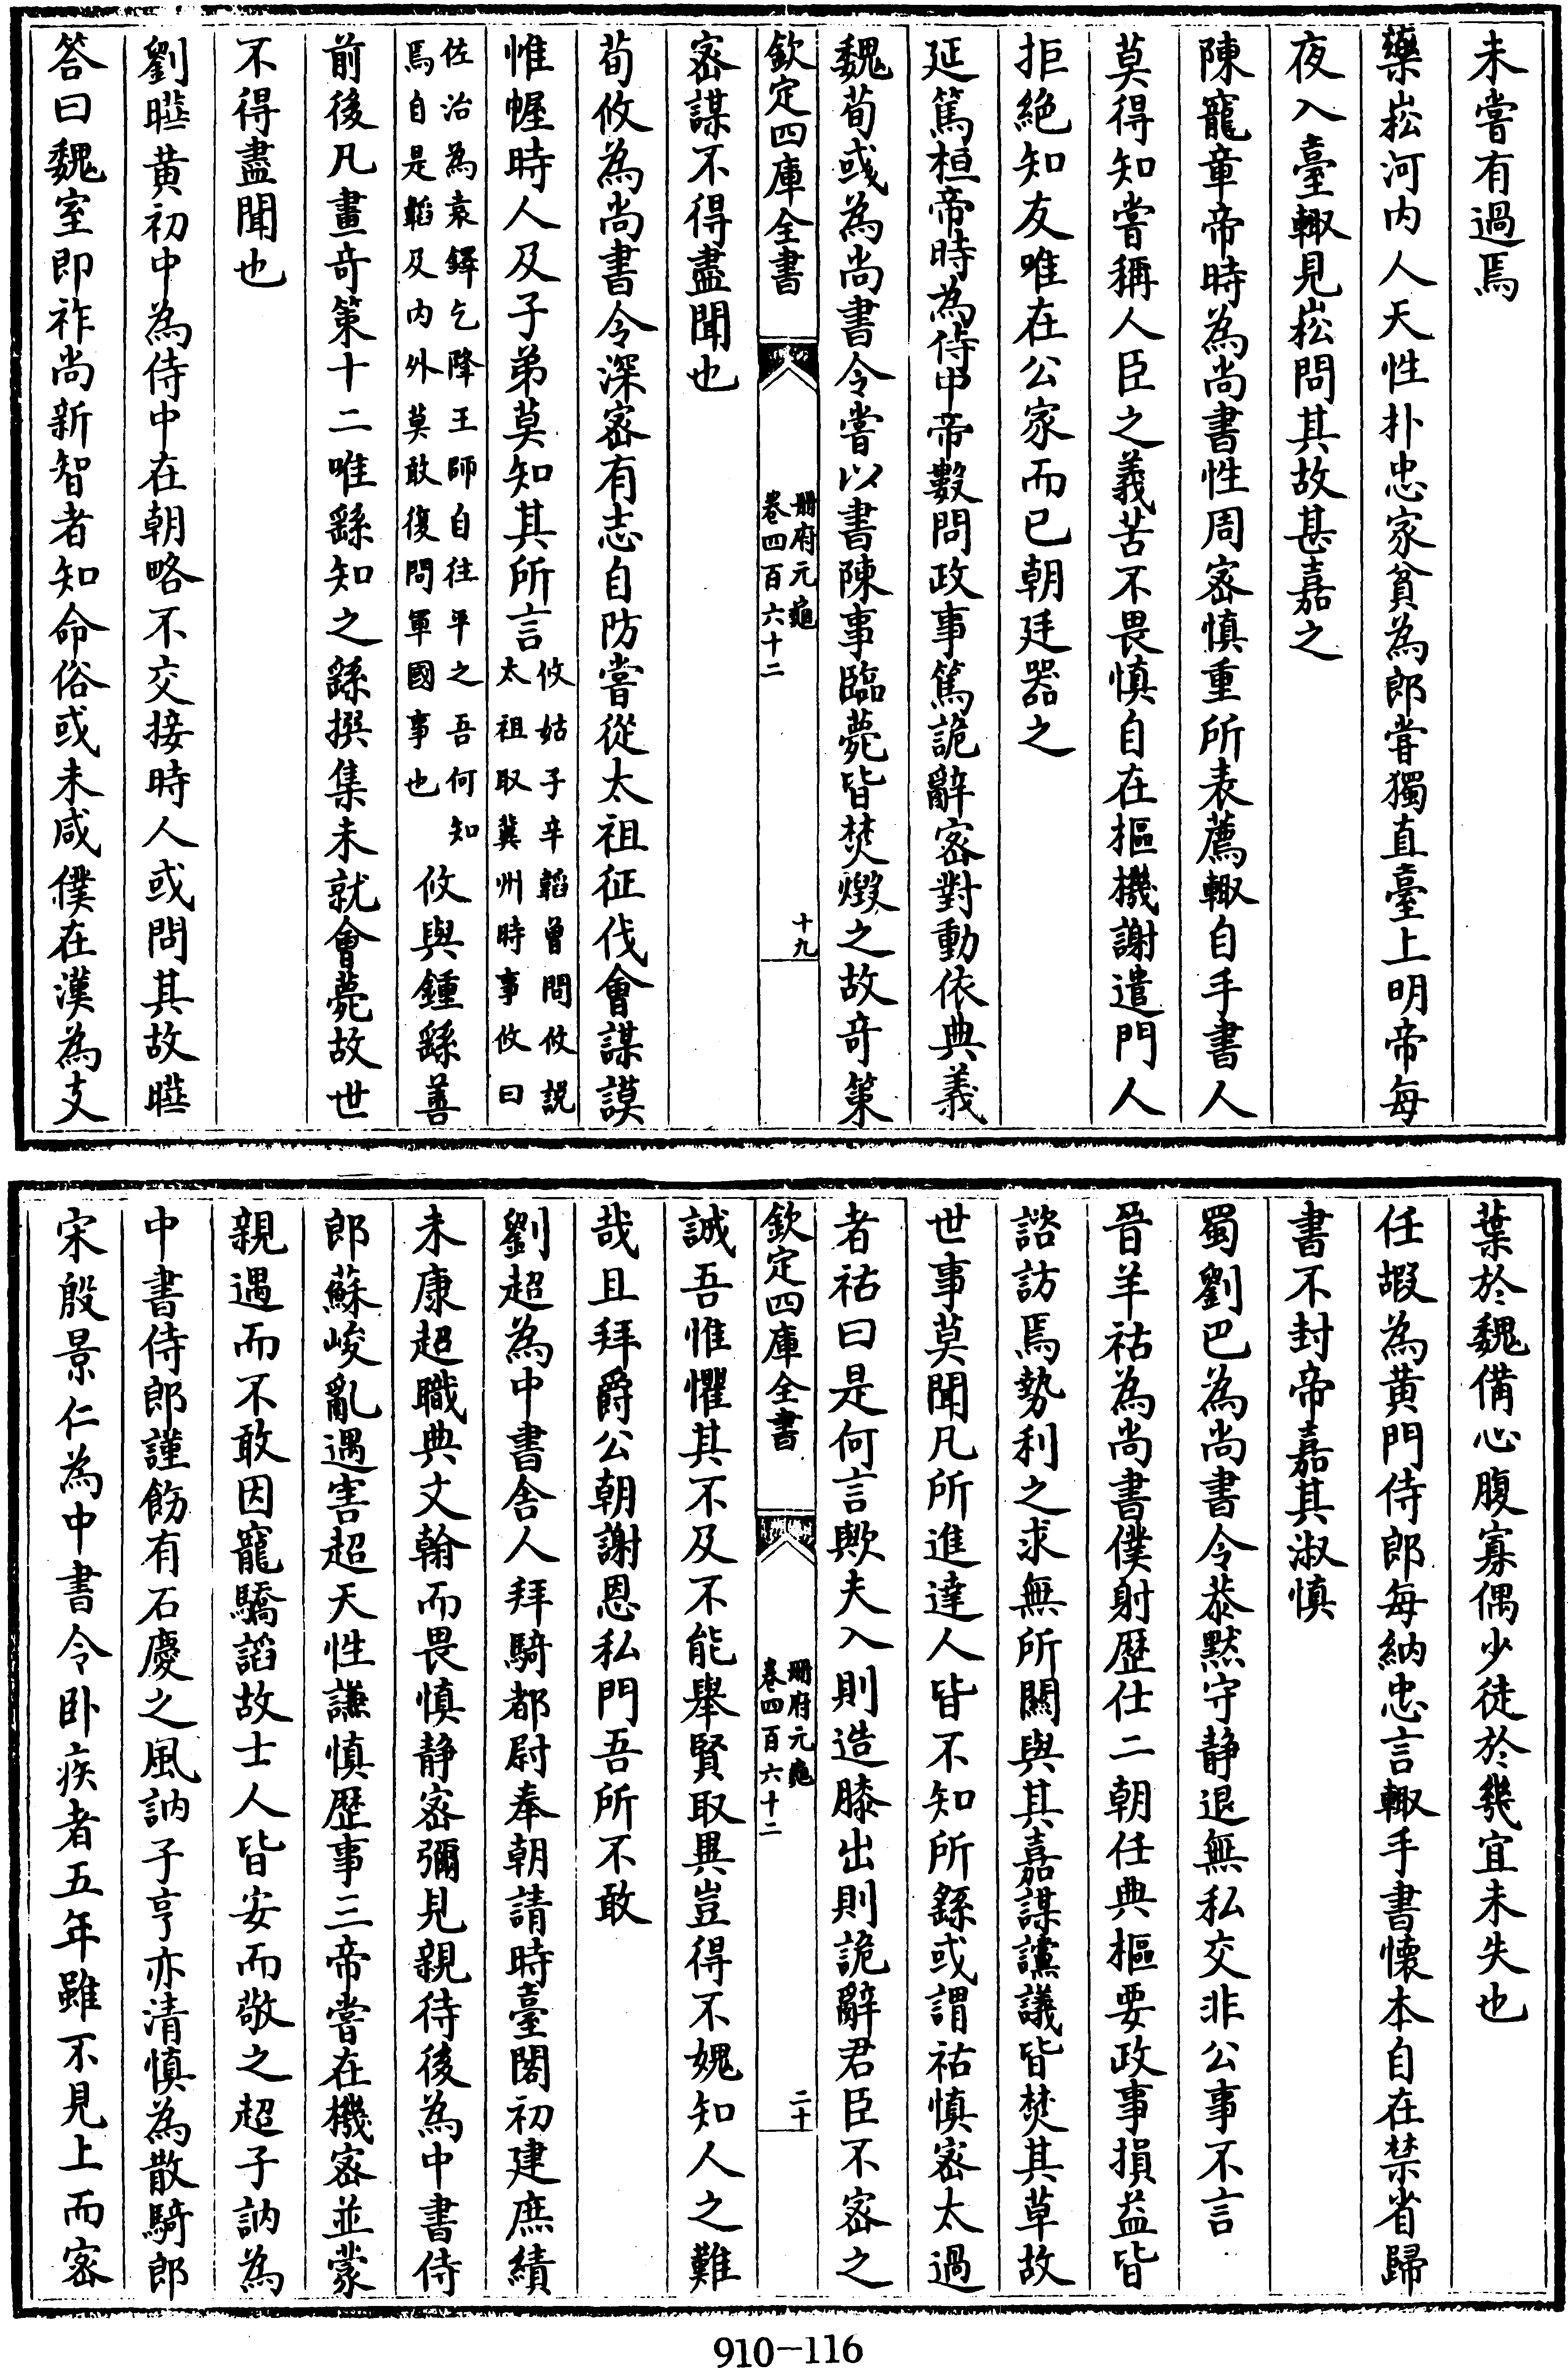 未嘗有過焉
藥崧河内人天性朴忠家貧為郎嘗獨直臺上明帝每
夜入臺輙見崧問其故甚嘉之
陳寵章帝時為尚書性周宻慎重所表薦輙自手書人
莫得知嘗稱人臣之義苦不畏慎自在樞機謝遣門人
拒絶知友唯在公家而已朝廷器之
延篤桓帝時為侍中帝數問政事篤詭辭宻對動依典義
魏荀彧為尚書令嘗以書陳事臨薨皆焚燬之故竒策
欽定四庫全書
册府元龜
卷四百六十二
十九
宻謀不得盡聞也
荀攸為尚書令深宻有志自防嘗從太祖征伐會謀謨
惟幄時人及子弟莫知其所言攸姑子辛韜曾問攸説
太祖取冀州時事攸曰
佐治為袁鐸乞降王師自往平之吾何知
焉自是韜及内外莫敢復問軍國事也攸與鍾繇善
前後凡畫竒策十二唯繇知之繇撰集未就會薨故世
不得盡聞也
劉曄黄初中為侍中在朝略不交接時人或問其故曄
答曰魏室即祚尚新智者知命俗或未咸僕在漢為支
葉於魏備心腹寡偶少徒於幾宜未失也
任嘏為黄門侍郎每納忠言輙手書懐本自在禁省歸
書不封帝嘉其淑慎
蜀劉巴為尚書令恭黙守静退無私交非公事不言
晉羊祜為尚書僕射歴仕二朝任典樞要政事損益皆
諮訪焉勢利之求無所闗與其嘉謀讜議皆焚其草故
世事莫聞凡所進達人皆不知所繇或謂祜慎宻太過
者祜曰是何言歟夫入則造膝出則詭辭君臣不宻之
欽定四庫全書
册府元龜
卷四百六十二
二十
誠吾惟懼其不及不能舉賢取異豈得不媿知人之難
哉且拜爵公朝謝恩私門吾所不敢
劉超為中書舍人拜騎都尉奉朝請時臺閣初建庶績
未康超職典文翰而畏慎静宻彌見親待後為中書侍
郎蘇峻亂遇害超天性謙慎歴事三帝嘗在機宻並蒙
親遇而不敢因寵驕謟故士人皆安而敬之超子訥為
中書侍郎謹飭有石慶之風訥子亨亦清慎為散騎郎
宋殷景仁為中書令卧疾者五年雖不見上而宻
910-116